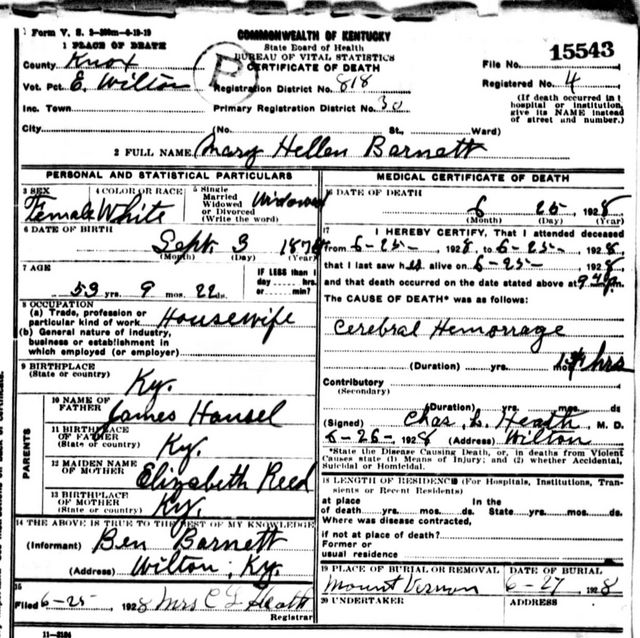 Form V. S.
COMMONWEALTH OF KENTUCKY
State Board of Health
BUREAU OF VITAL STATISTICS
CERTIFICATE OF DEATH
1 PLACE OF DEATH
County Knox
Vot. Pct. E. Wilton
Inc. Town
City
P
Registration District No. 818
Primary Registration District No. 30
(No. St., Ward)
File No. 15543
Registered No. 4
(If death occurred in
hospital or institution,
give its NAME instead
of street and number.)
2 FULL NAME Mary Hellen Barnett
PERSONAL AND STATISTICAL PARTICULARS
3 SEX
Female
4 COLOR OR RACE
White
5 Single
Married
Widowed
or Divorced
(Write the word)
Widowed
6 DATE OF BIRTH
Sept. 3
(Month) (Day) (Year)
7 AGE
53 yrs. 9 mos. 22 ds.
IF LESS than 1
day hrs.
or min?
8 OCCUPATION
(a) Trade, profession or
particular kind of work Housewife
(b) General nature of industry,
business or establishment in
which employed (or employer)
9 BIRTHPLACE
(State or country) Ky.
PARENTS
10 NAME OF
FATHER James Hansel
11 BIRTHPLACE
OF FATHER
(State or country) Ky.
12 MAIDEN NAME
OF MOTHER Elizabeth Reed
13 BIRTHPLACE
OF MOTHER
(State or country) Ky.
14 THE ABOVE IS TRUE TO THE BEST OF MY KNOWLEDGE
(Informant) Ben Barnett
(Address) Wilton, Ky.
15
Filed 6-25 1928 Mrs C L Heath
Registrar
MEDICAL CERTIFICATE OF DEATH
16 DATE OF DEATH
6 25 1928
(Month) (Day) (Year)
17 I HEREBY CERTIFY, That I attended deceased
from 6-25- 1928, to 6-25- 1928
that I last saw h alive on 6-25- 1928
and that death occurred on the date stated above at
The CAUSE OF DEATH* was as follows:
Cerebral Hemorrage
(Duration) yrs. mos. hrs
Contributory
(Secondary)
(Duration) yrs. mos. ds
(Signed) Chas. L. Heath, M. D.
6-26- 1928 (Address) Wilton
*State the Disease Causing Death, or, in deaths from Violent
Causes state (1) Means of Injury; and (2) whether Accidental,
Suicidal or Homicidal.
18 LENGTH OF RESIDENCE (For Hospitals, Institutions, Tran-
sients or Recent Residents)
at place In the
of death yrs. mos. ds. State yrs. mos. ds.
Where was disease contracted,
if not at place of death?
Former or
usual residence
19 PLACE OF BURIAL OR REMOVAL
Mount Vernon
DATE OF BURIAL
6-27 1928
20 UNDERTAKER
ADDRESS
11-3184